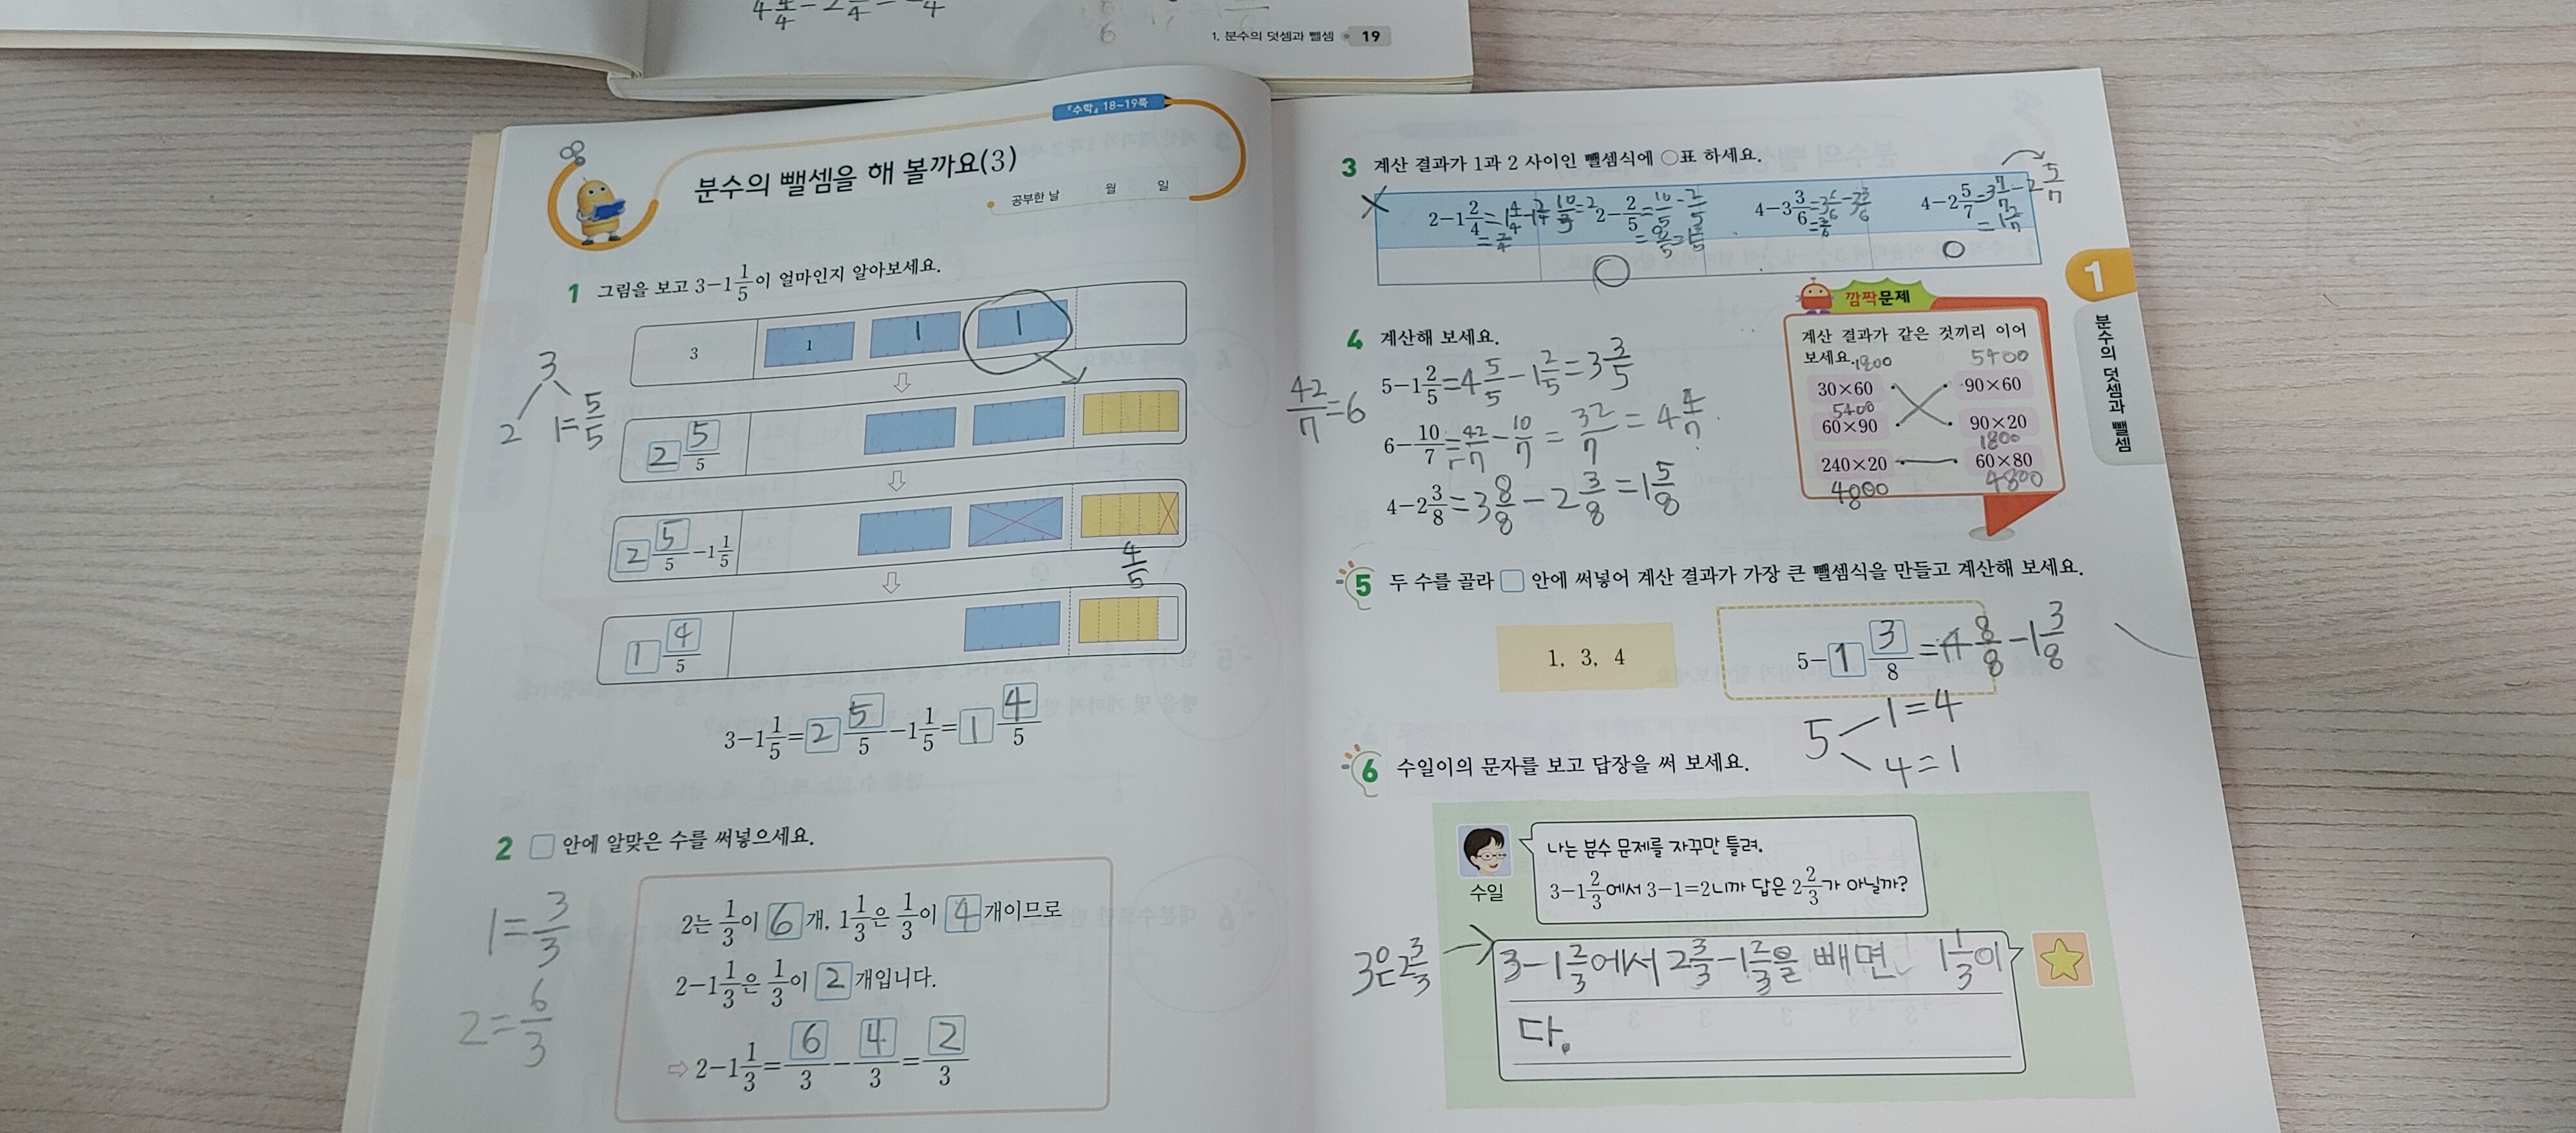 4 4/4 - 2
1. 분수의 덧셈과 뺄셈 19
『수학』 18~19쪽
분수의 뺄셈을 해 볼까요(3)
공부한 날 월 일
1 그림을 보고 3-1 1/5이 얼마인지 알아보세요.
3 1 1 1
3
2 1=5/5
2 5/5
2 5/5 -1 1/5
4/5
1 4/5
3-1 1/5=2 5/5-1 1/5=1 4/5
2 □ 안에 알맞은 수를 써넣으세요.
1=3/3
2=6/3
2는 1/3이 6개, 1 1/3은 1/3이 4개이므로
2-1 1/3은 1/3이 2개입니다.
⇨ 2-1 1/3=6/3-4/3=2/3
3 계산 결과가 1과 2 사이인 뺄셈식에 ○표 하세요.
2-1 2/4=1 4/4-1 2/4
=2/4
10/5=2
2-2/5=10/5-2/5
=8/5=1 3/5
4-3 3/6=3 6/6-3 3/6
=3/6
4-2 5/7=3 7/7-2 5/7
=1 2/7
○ ○
4 계산해 보세요.
5-1 2/5=4 5/5-1 2/5=3 3/5
42/7=6
6-10/7=42/7-10/7=32/7=4 4/7
4-2 3/8=3 8/8-2 3/8=1 5/8
깜짝문제
계산 결과가 같은 것끼리 이어
보세요.
1800 5400
30×60 90×60
5400
60×90 90×20
1800
240×20 60×80
4800 4800
1
분수의 덧셈과 뺄셈
5 두 수를 골라 □ 안에 써넣어 계산 결과가 가장 큰 뺄셈식을 만들고 계산해 보세요.
1, 3, 4
5-1 3/8=4 8/8-1 3/8
5 1=4
4=1
6 수일이의 문자를 보고 답장을 써 보세요.
수일
나는 분수 문제를 자꾸만 틀려.
3-1 2/3에서 3-1=2니까 답은 2 2/3가 아닐까?
3은 2 3/3
3-1 2/3에서 2 3/3-1 2/3을 빼면 1 1/3이
다.